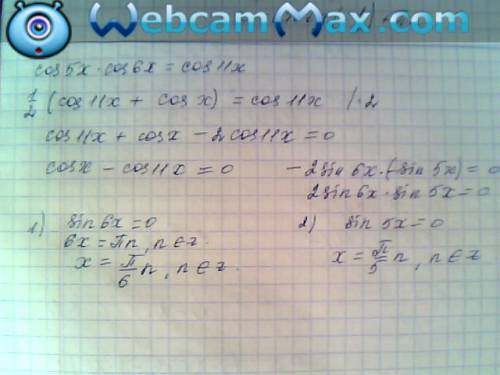 WebcamMax.com
cos5x·cos6x = cos11x
1/2 (cos11x + cosx) = cos11x /·2
cos11x + cosx - 2cos11x = 0
cosx - cos11x = 0
-2sin6x·(-sin5x) = 0
2sin6x·sin5x = 0
1) sin6x = 0
6x = πn, n∈z.
x = π/6 n, n∈z.
2) sin5x = 0
x = π/5 n, n∈z